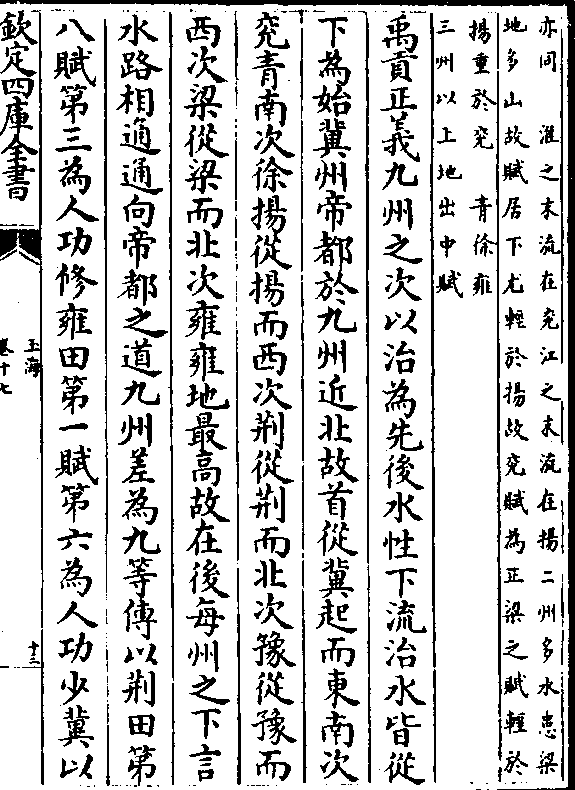 亦同　淮之末流在兗江之末流在揚二州多水患梁
地多山故賦居下尤輕於揚故兗賦為正梁之賦輕於
揚重於兗　青徐雍
三州以上地出中賦
禹貢正義九州之次以治為先後水性下流治水皆從
下為始冀州帝都於九州近北故首從冀起而東南次
兗青南次徐揚從揚而西次荆從荆而北次豫從豫而
西次梁從梁而北次雍雍地最高故在後每州之下言
水路相通通向帝都之道九州差為九等傳以荆田第
八賦第三為人功修雍田第一賦第六為人功少冀以
欽定四庫全書
玉海
卷十七
十三